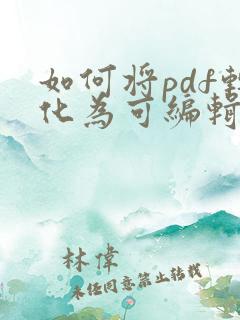 如何将pdf
化为可编辑
林偉
未任同意禁止转载